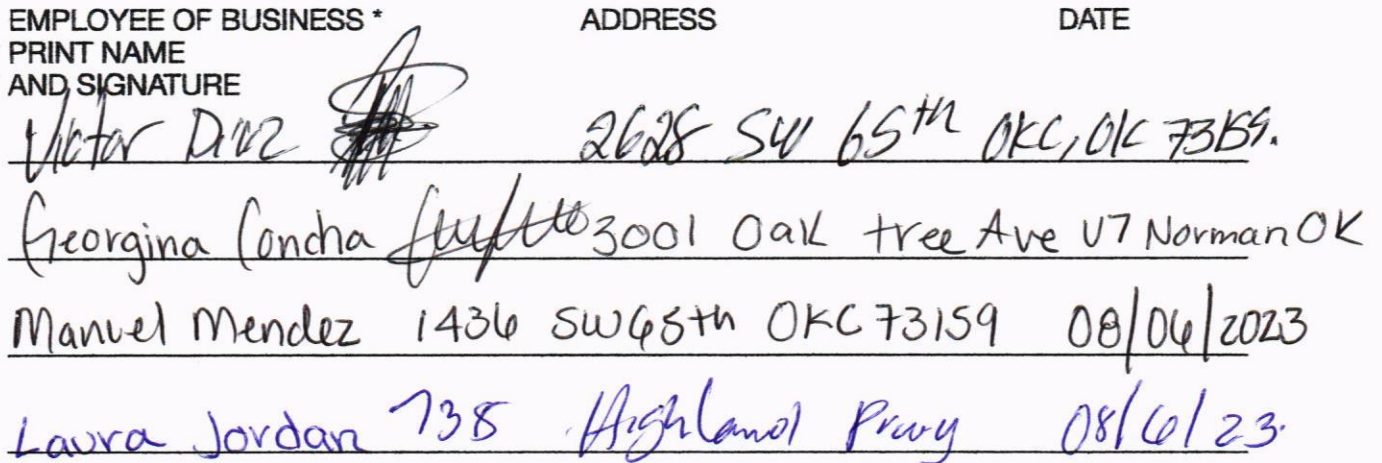 EMPLOYEE OF BUSINESS * ADDRESS DATE
PRINT NAME
AND SIGNATURE
Victor Diaz 2628 SW 65th OKC, OK 73159.
Georgina Concha 3001 Oak tree Ave U7 Norman OK
Manuel Mendez 1436 SW 65th OKC 73159 08/06/2023
Laura Jordan 738 Highland Prwy 08/6/23.